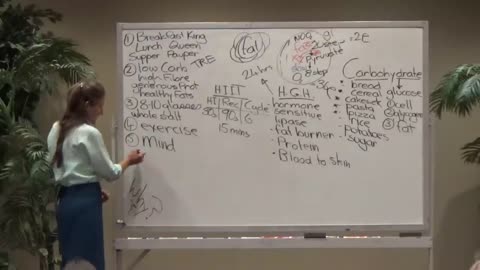 ① Breakfast King
Lunch Queen
Supper Pauper
② low Carb
high Fibre
generous prot
healthy Fats
③ 8-10 glasses
whole salt
④ exercise
⑤ Mind
TRE
fat
HIIT
HI Rec Cycle
30s 90s 8
15 mins
H.G.H
hormone
sensitive
lipase
• fat burner
• Protein
• Blood to skin
pyruvate
2E
Carbohydrate
bread
cereal
cakes
pasta
pizza
rice
potatoes
sugar
① glucose
② cell
glycogen
③ fat